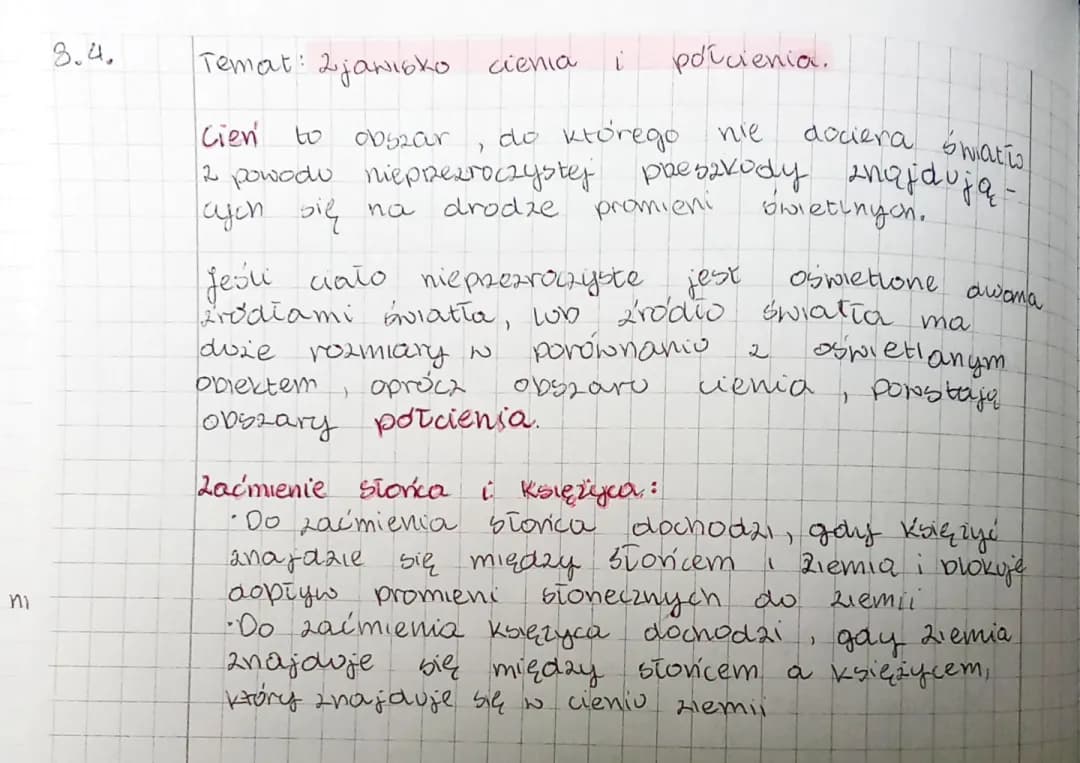 8.4. Temat: Zjawisko cienia i półcienia.
Cień to obszar, do którego nie dociera światło
z powodu nieprzezroczystej przeszkody znajdują-
cych się na drodze promieni świetlnych.
Jeśli ciało nieprzezroczyste jest oświetlone dwoma
źródłami światła, lub źródło światła ma
duże rozmiary w porównaniu z oświetlanym
obiektem, oprócz obszaru cienia, powstają
obszary półcienia.
Zaćmienie słońca i księżyca:
• Do zaćmienia słońca dochodzi, gdy księżyć
znajdzie się między słońcem i ziemia i blokuje
dopływ promieni słonecznych do ziemii
• Do zaćmienia księżyca dochodzi, gdy ziemia
znajduje się między słońcem a księżycem,
który znajduje się w cieniu ziemii
ni